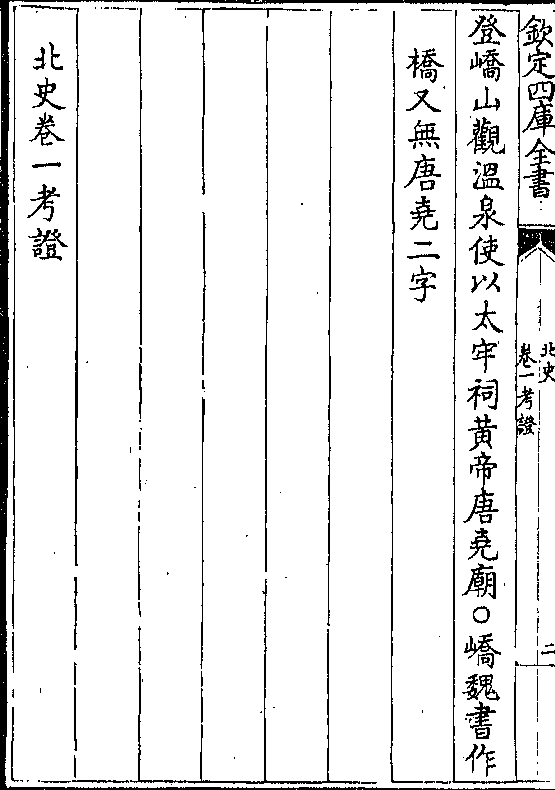 欽定四庫全書
北史
卷一考證
二
登嶠山觀溫泉使以太牢祠黃帝唐堯廟○嶠魏書作
橋又無唐堯二字
北史卷一考證